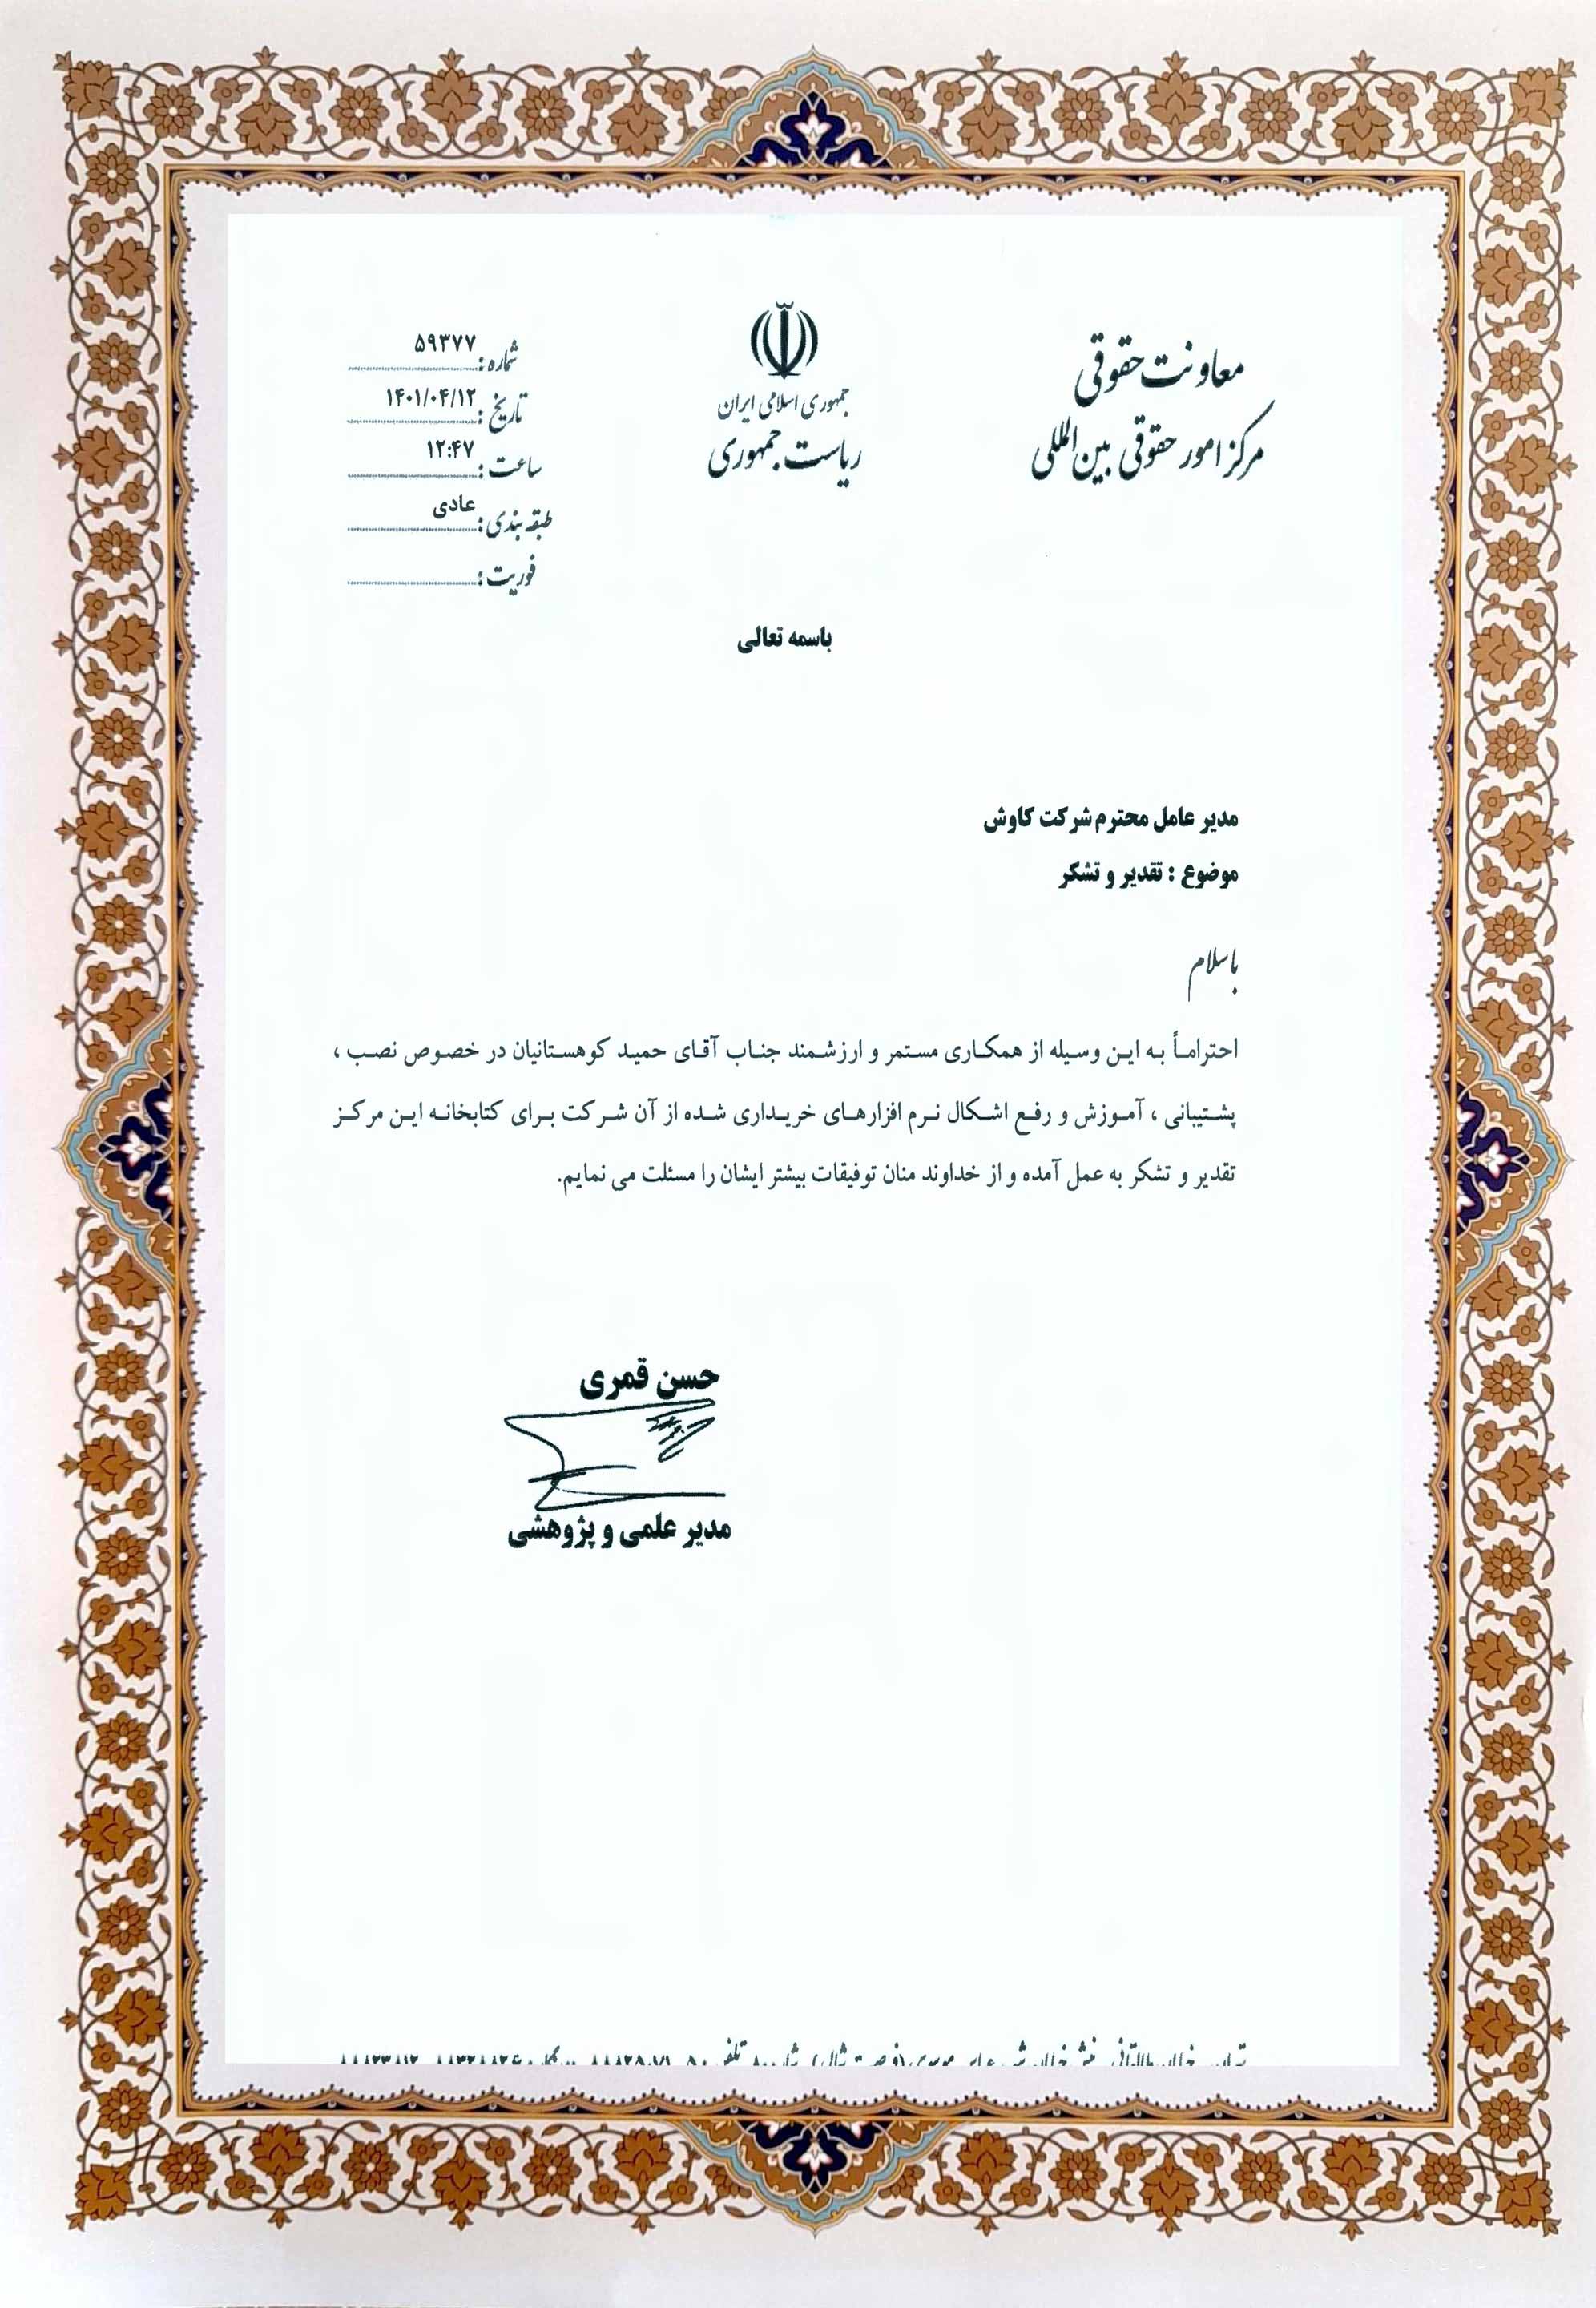 معاونت حقوقی
مرکز امور حقوقی بین المللی
جمهوری اسلامی ایران
ریاست جمهوری
شماره : ۵۹۳۷۷
تاریخ : ۱۴۰۱/۰۴/۱۲
ساعت : ۱۲:۴۷
طبقه بندی : عادی
فوریت :
باسمه تعالی
مدیر عامل محترم شرکت کاوش
موضوع : تقدیر و تشکر
باسلام
احتراماً به این وسیله از همکاری مستمر و ارزشمند جناب آقای حمید کوهستانیان در خصوص نصب ،
پشتیبانی ، آموزش و رفع اشکال نرم افزارهای خریداری شده از آن شرکت برای کتابخانه این مرکز
تقدیر و تشکر به عمل آمده و از خداوند منان توفیقات بیشتر ایشان را مسئلت می نمایم.
حسن قمری
مدیر علمی و پژوهشی